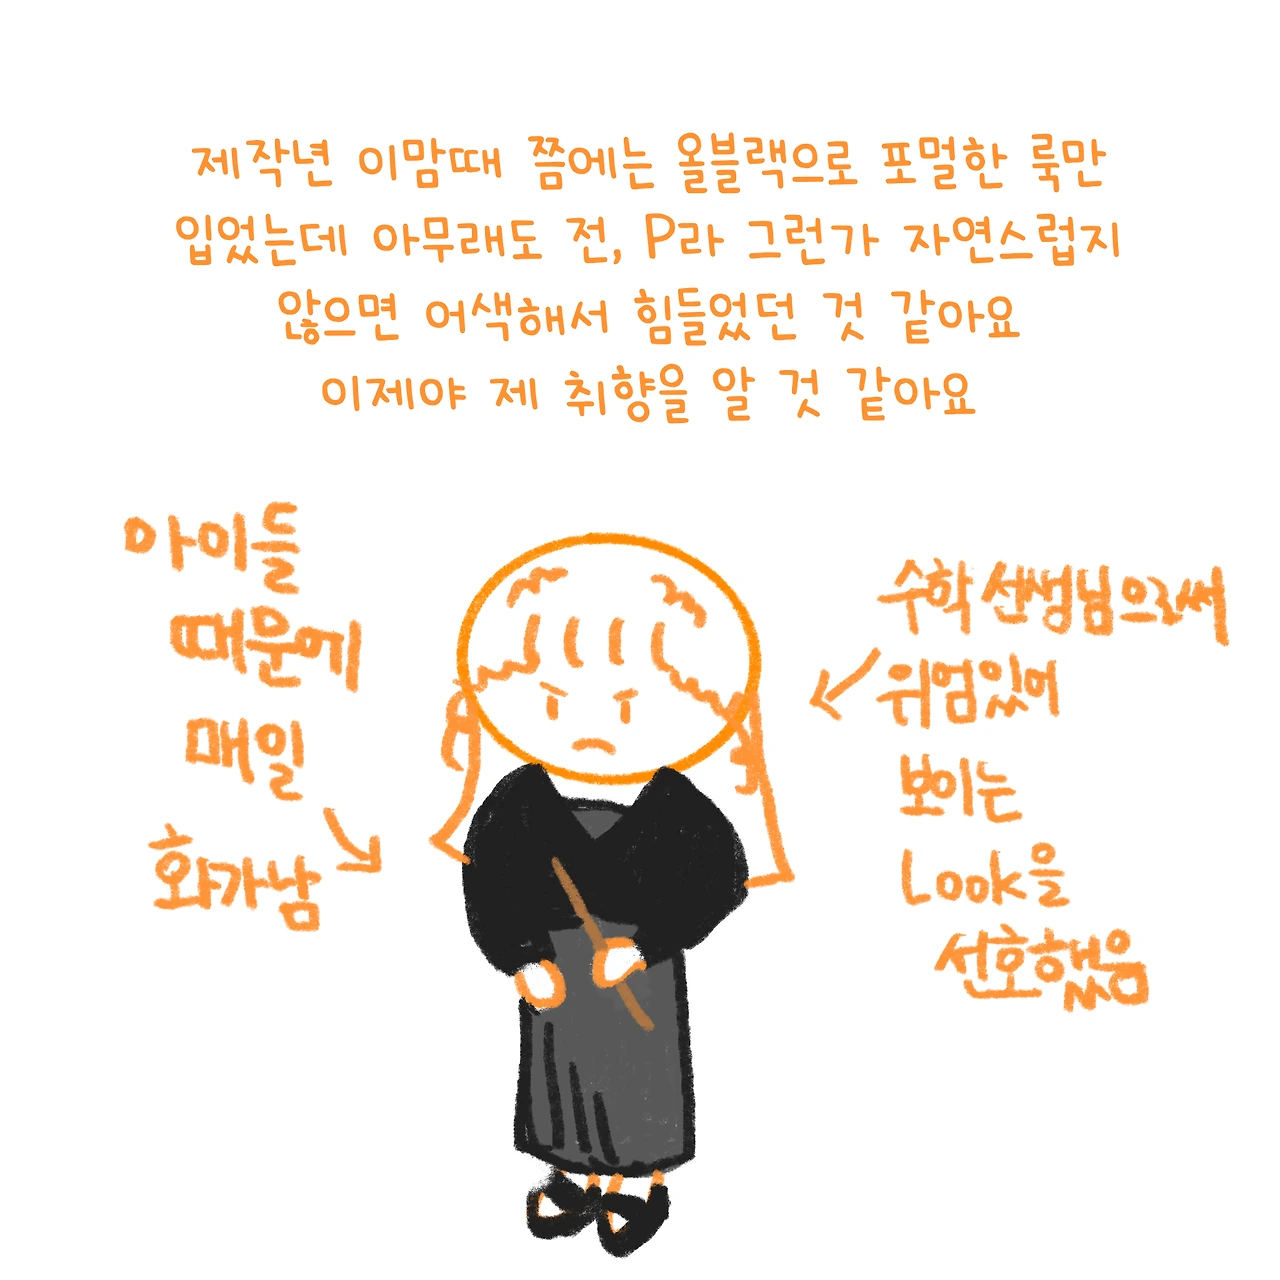 제작년 이맘때 쯤에는 올블랙으로 포멀한 룩만
입었는데 아무래도 전, P라 그런가 자연스럽지
않으면 어색해서 힘들었던 것 같아요
이제야 제 취향을 알 것 같아요
아이들
때문에
매일
화가남
수학선생님으로써
위엄있에
보이는
Look을
선호했음